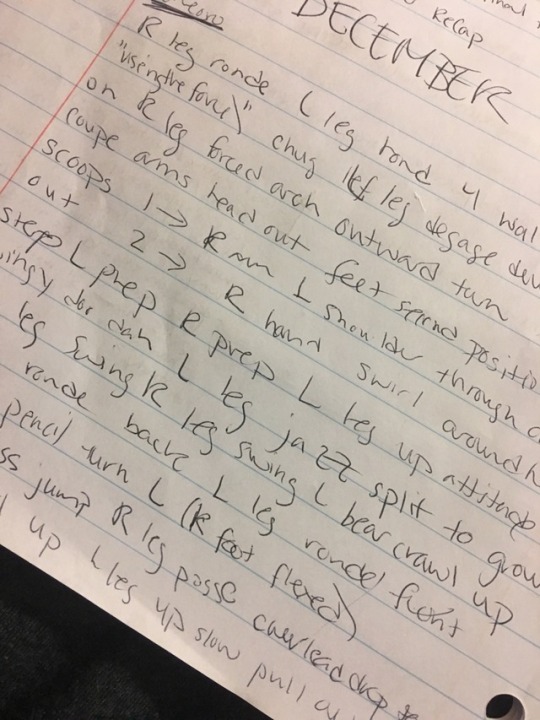 Recap
DECEMBER
R leg ronde L leg hond 4 wal
"using the force" chug lef leg degage dev
on R leg forced arch outward turn
coupe arms head out feet second positio
scoops 1 → R arm L shoulder through
out 2 → R hand swirl around h
step L prep R prep L leg up attitude
L leg jazz split to grou
leg swing R leg swing L bear crawl up
ronde back L leg ronde front
pencil turn L (R foot flexed)
jump R leg passe overhead drop to
up L leg up slow pull